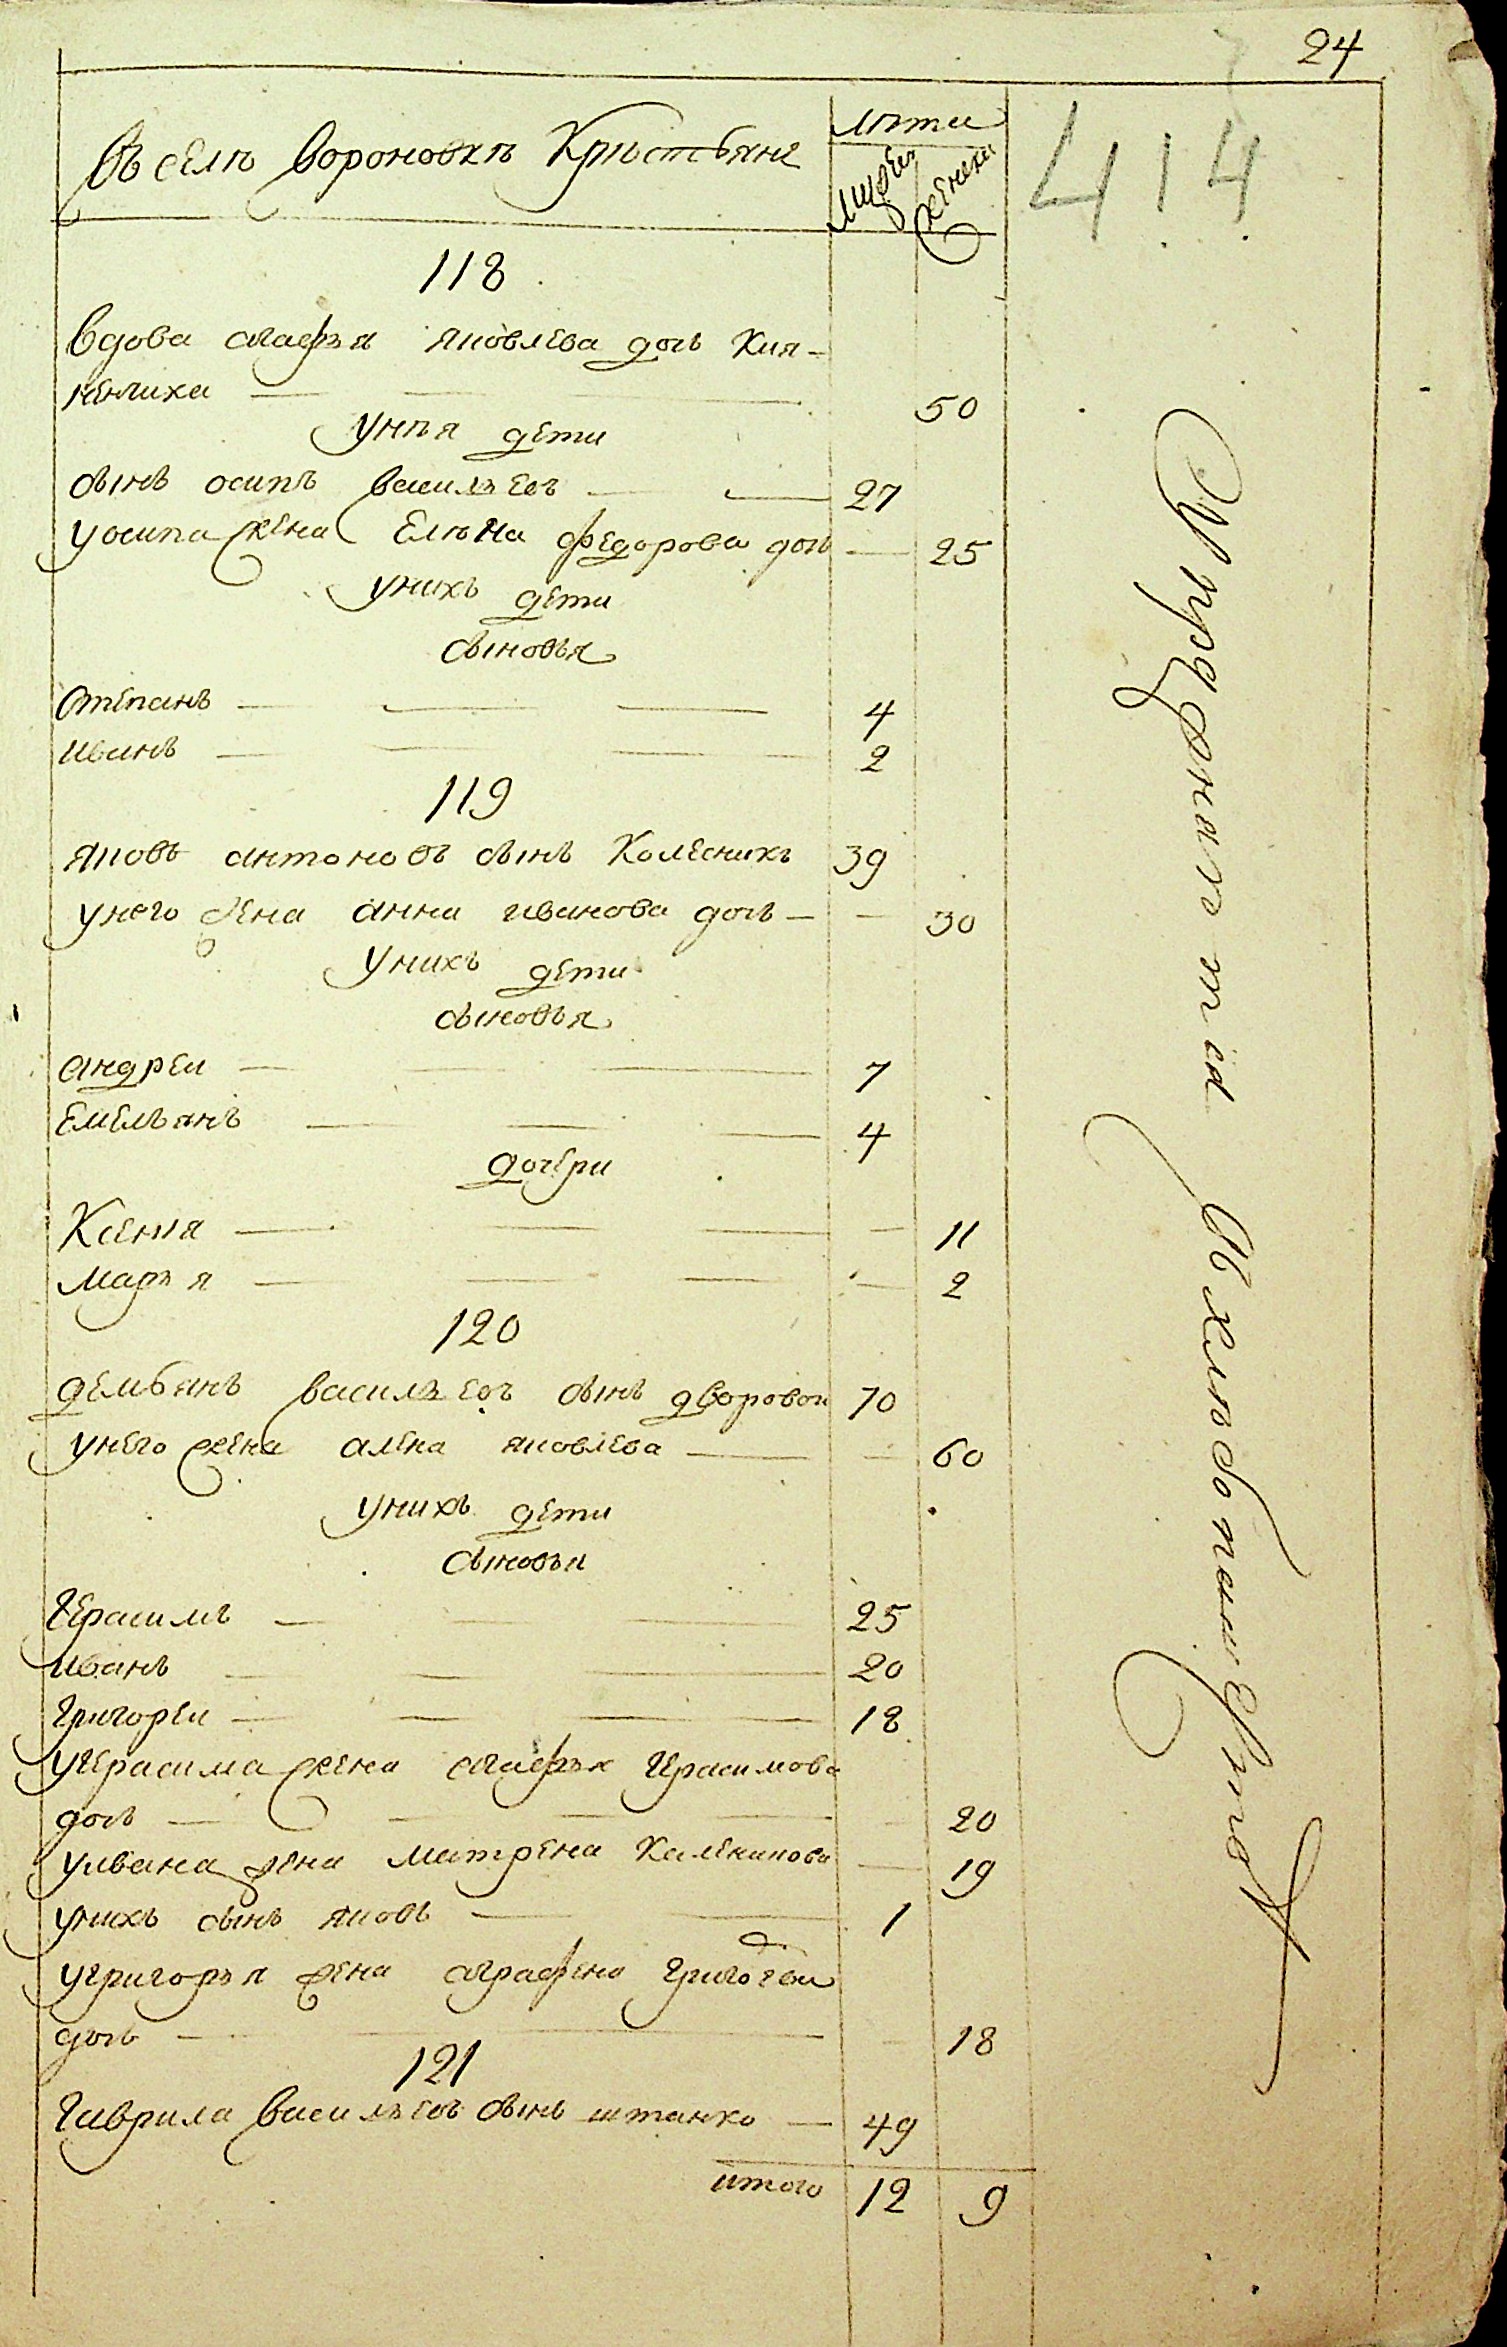 24
414
въ селѣ вороновкѣ крѣстьянє
лѣта
мужеи
женска
118
вдова агафья яковлева дочь Кия-
ненчиха 50
у нѣя дети
сынъ осипъ васильевъ 27
у осипа жена Елѣна федорова дочь 25
у нихъ дети
сыновья
степанъ 4
иванъ 2
119
яковъ антоновъ сынъ Колесникъ 39
у него жена анна иванова дочь 30
у нихъ дети
сыновья
андреи 7
Емельянъ 4
дочери
Ксения 11
марья 2
120
демьянъ васильевъ сынъ дворовои 70
у него жена алена яковлева 60
у нихъ дети
сыновья
герасимъ 25
иванъ 20
григореи 18
у герасима жена агафья герасимова
дочь 20
у ивана жена матрена Каленикова 19
у нихъ сынъ яковъ 1
у григорья жена аграфена григорева
дочь 18
121
гаврила васильевъ сынъ штанко 49
итого 12 9